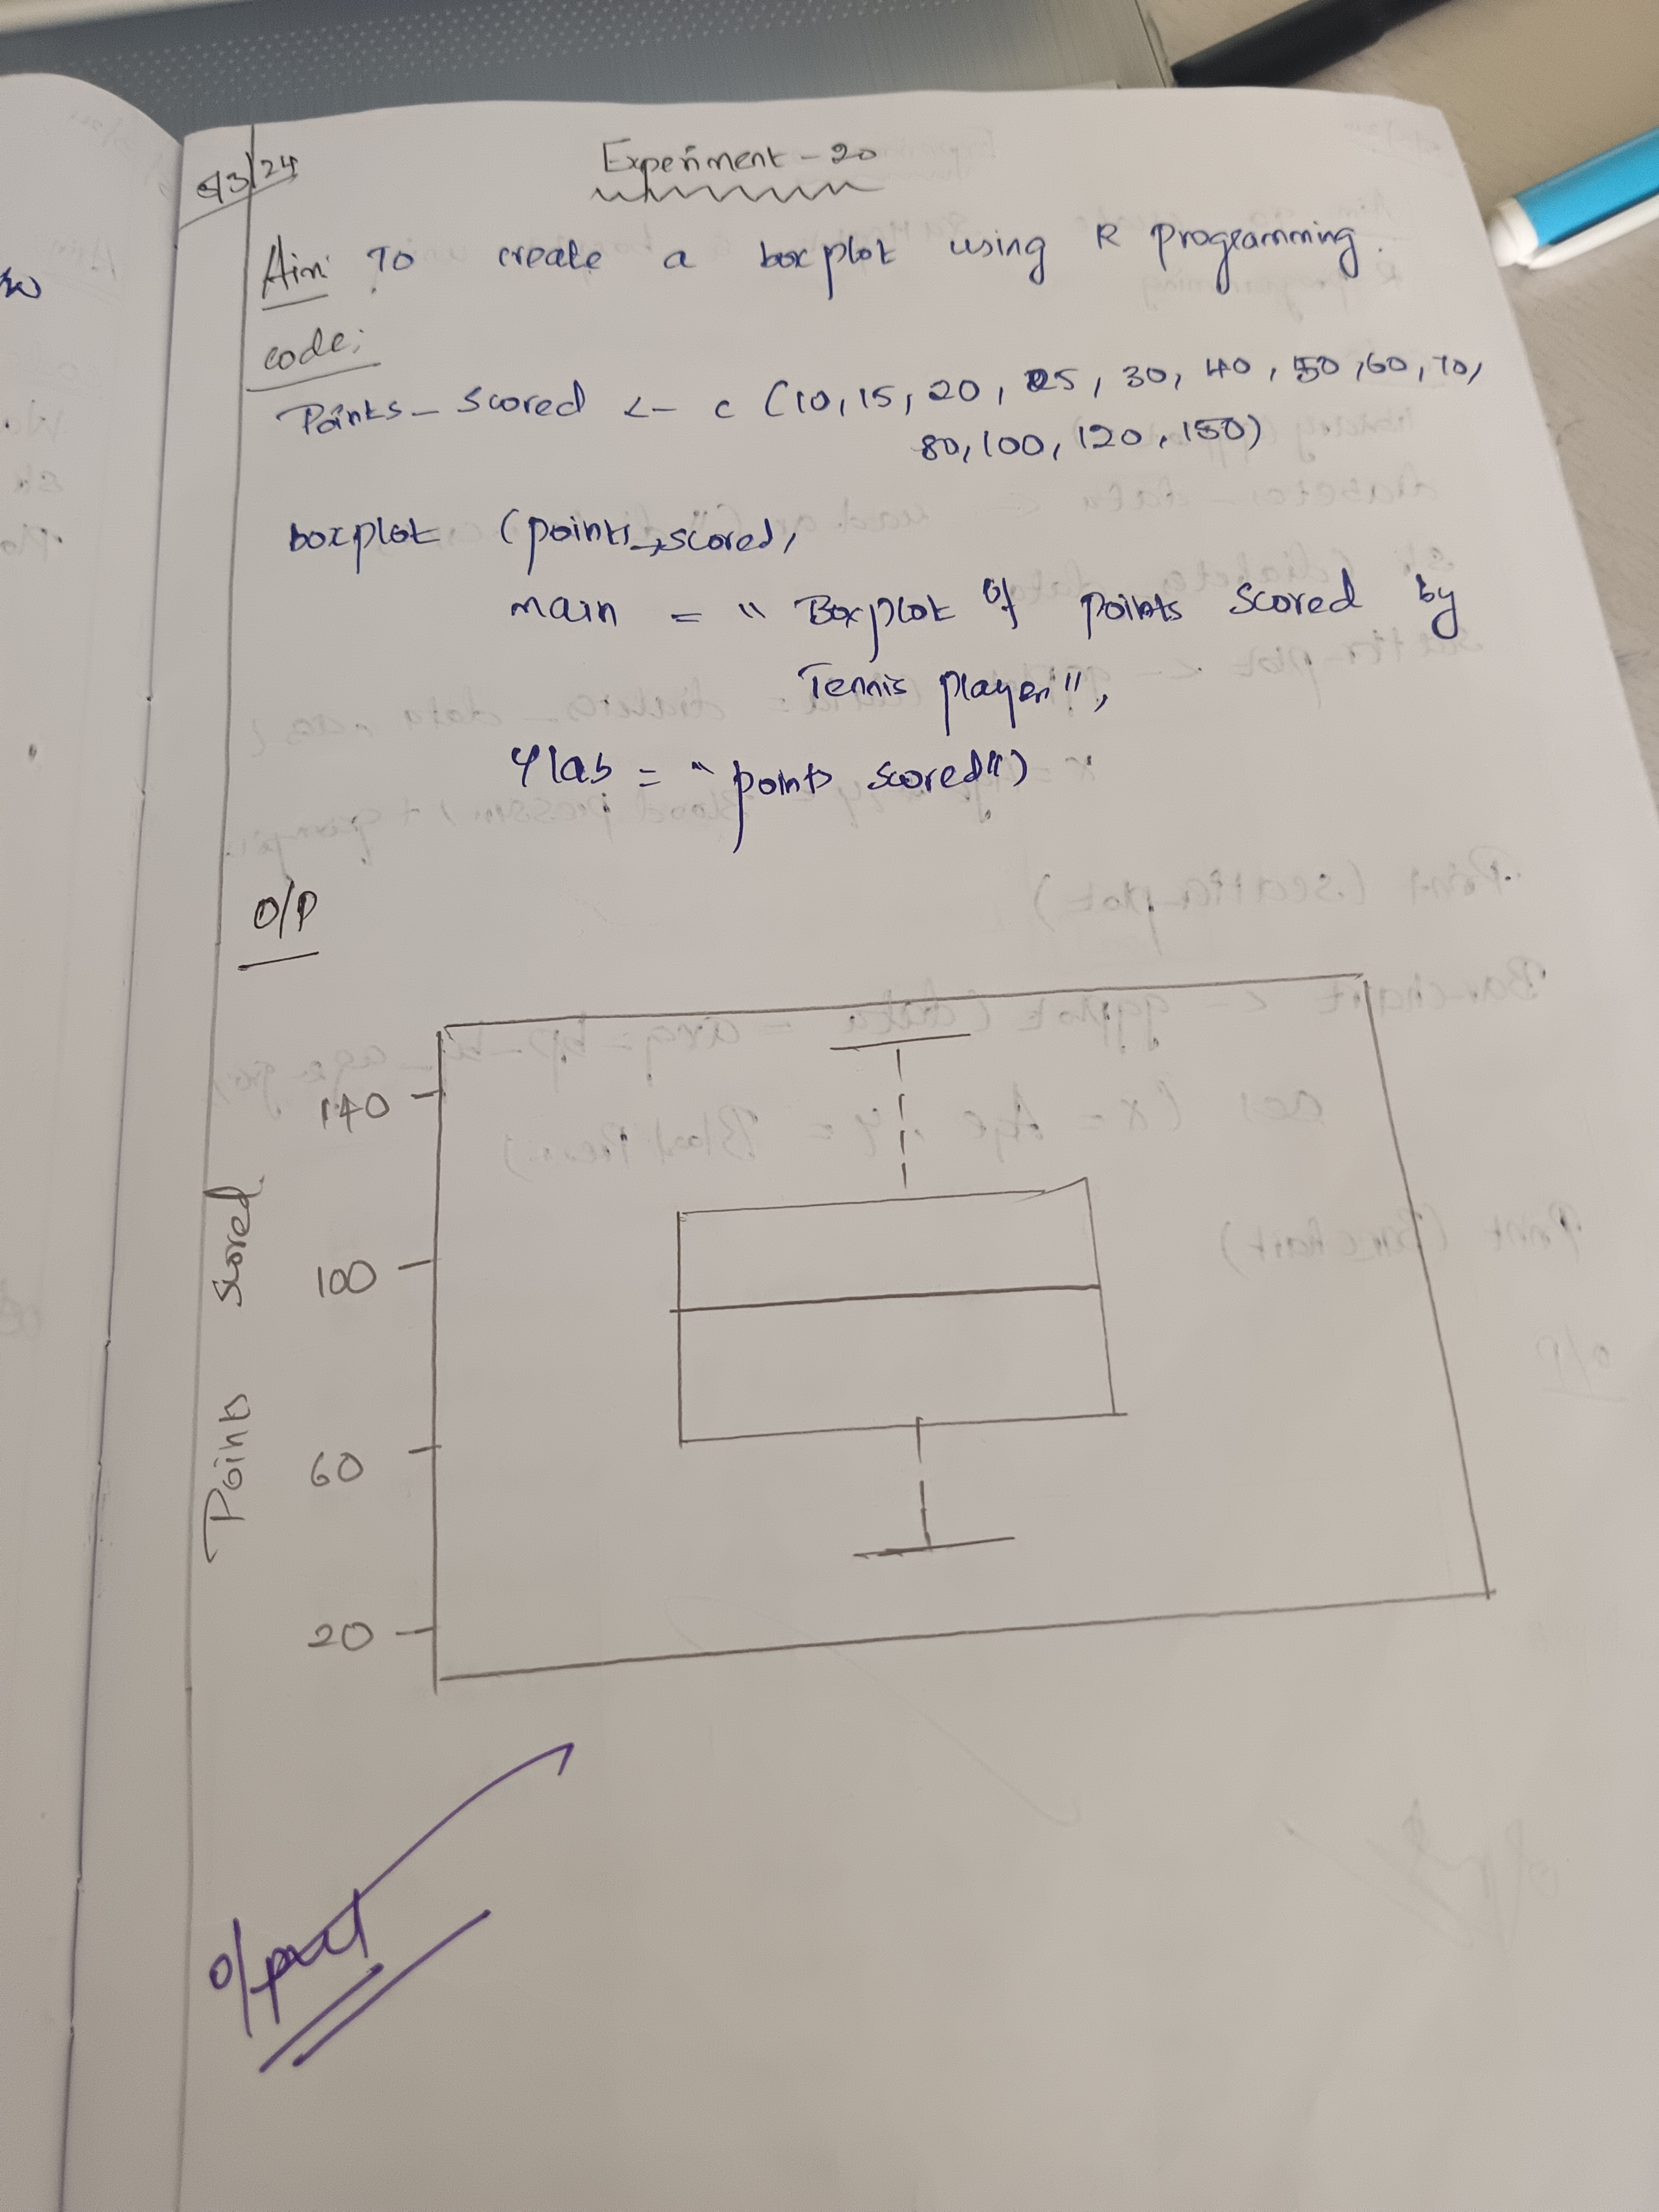 6/3/24
Experiment - 20
Aim: To create a boxplot using R Programming.
code:
Points_scored <- c (10, 15, 20, 25, 30, 40, 50, 60, 70,
80, 100, 120, 150)
boxplot (points_scored,
main = " Boxplot of points scored by
Tennis player",
Ylab = " points scored")
O/P
140
100
60
20
Points Scored